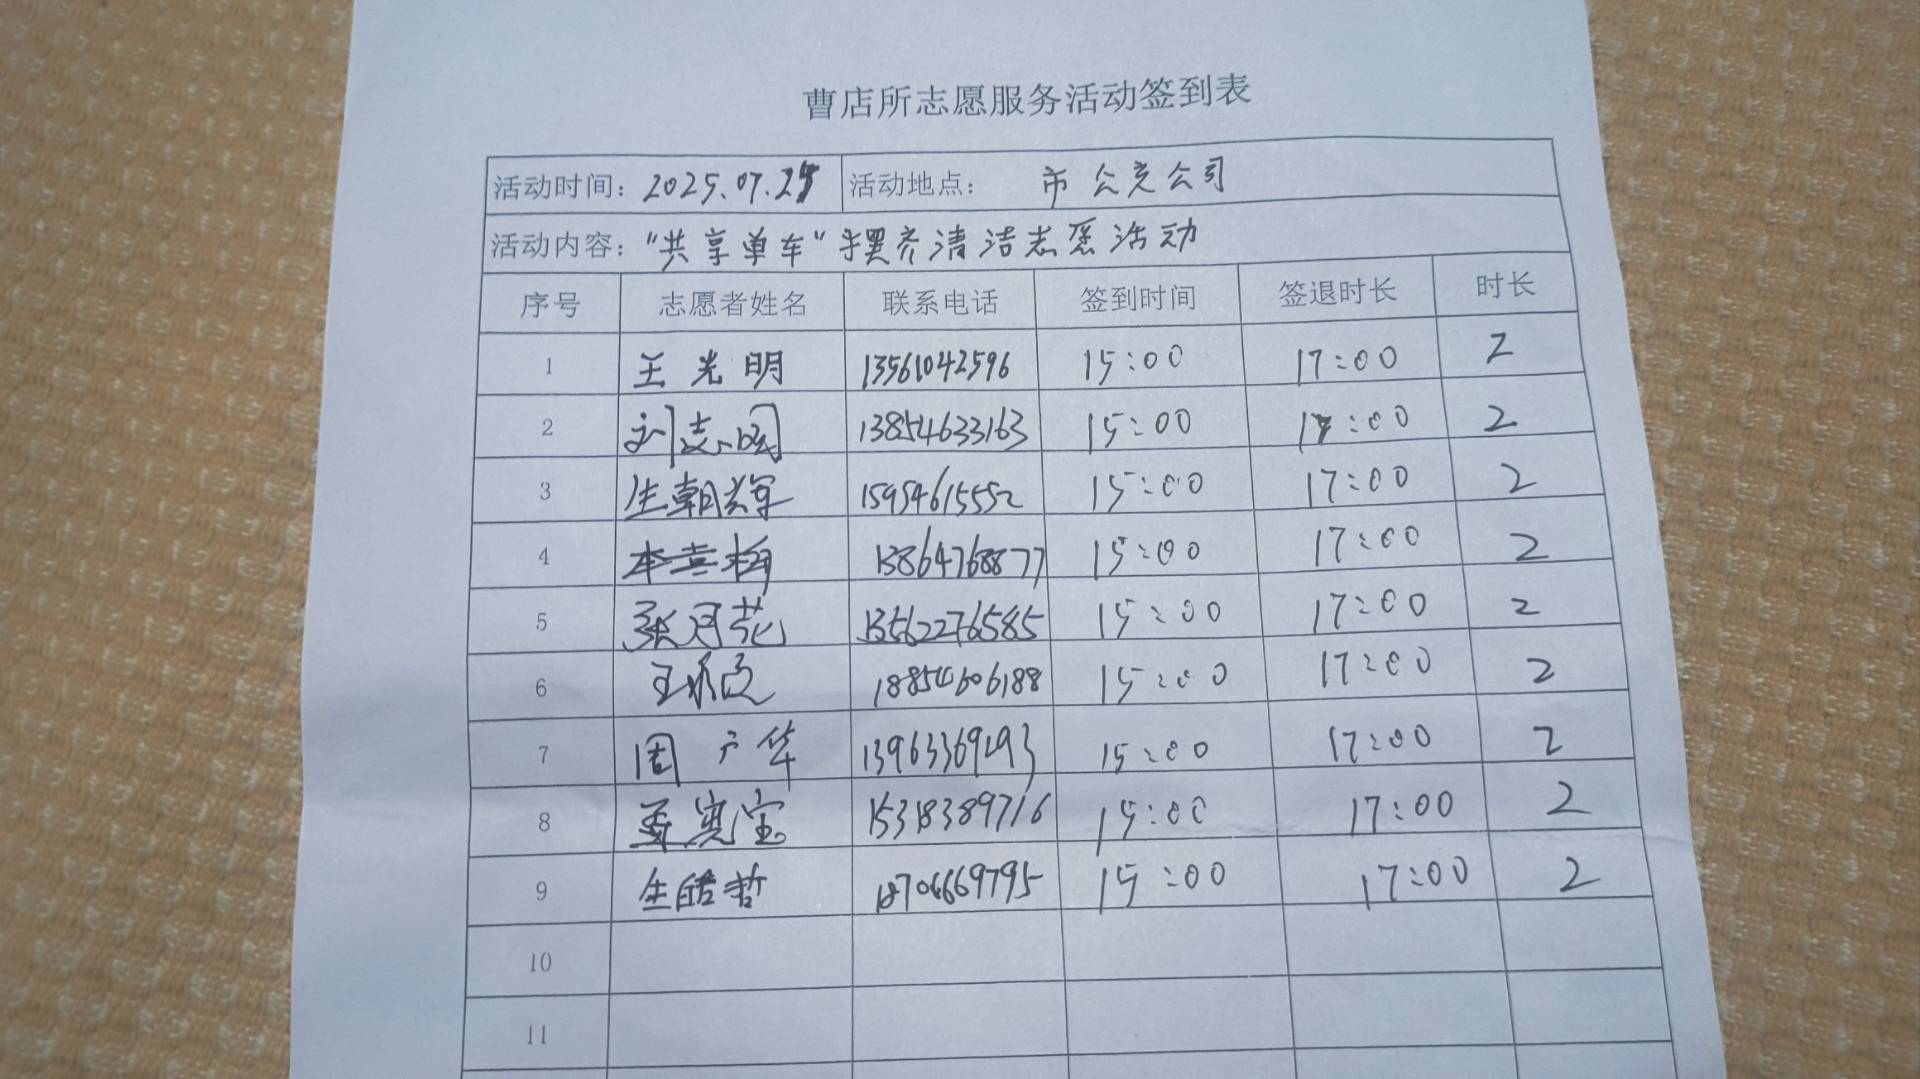 曹店所志愿服务活动签到表
活动时间: 2025.07.25 活动地点: 市公交公司
活动内容: "共享单车"摆齐清洁志愿活动
序号 志愿者姓名 联系电话 签到时间 签退时长 时长
1 王光明 13561042596 15:00 17:00 2
2 刘志国 13854633163 15:00 17:00 2
3 生朝辉 15954615552 15:00 17:00 2
4 13864768877 15:00 17:00 2
5 张月花 13562276585 15:00 17:00 2
6 18854606188 15:00 17:00 2
7 周广华 13963369293 15:00 17:00 2
8 15318389716 15:00 17:00 2
9 生皓哲 18706669795 15:00 17:00 2
10
11